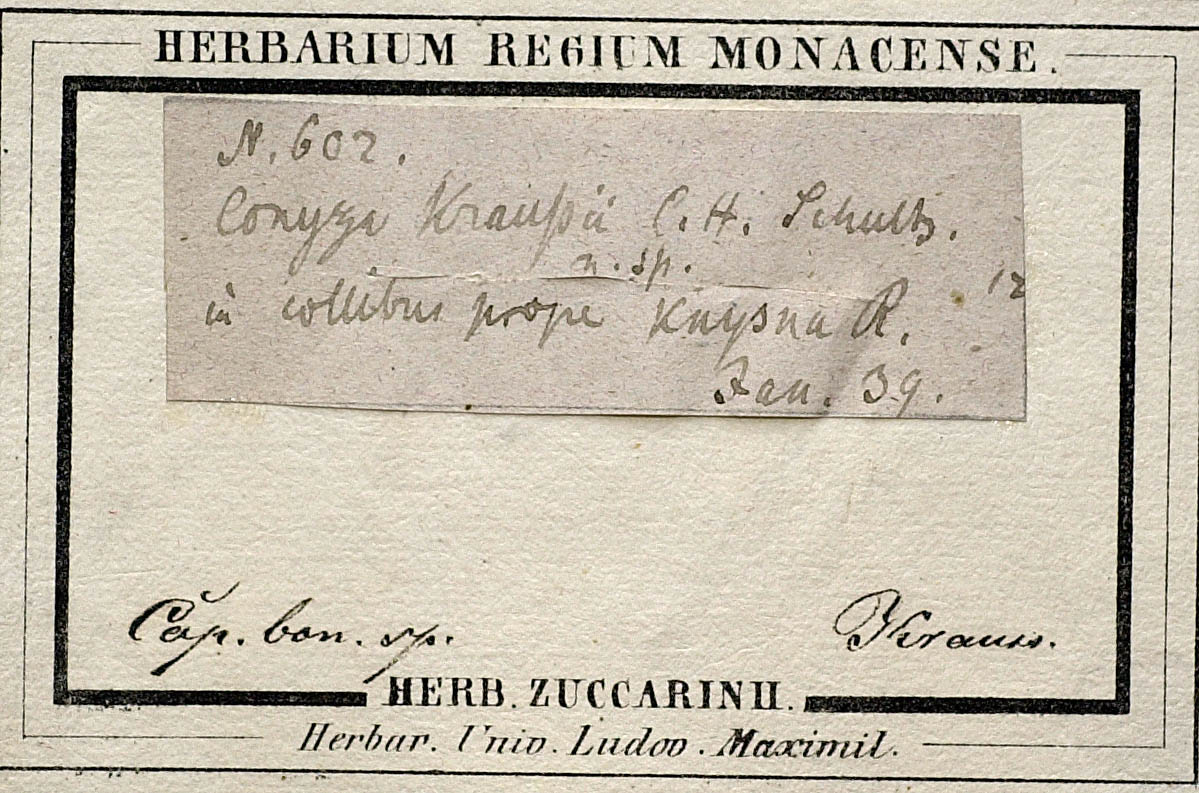 HERBARIUM REGIUM MONACENSE.
N. 602.
Conyza Kraußii C. H. Schultz.
n. sp.
12
in collibus prope Knysna R.
Jan. 39.
Cap. bon. sp.
Krauss.
HERB. ZUCCARINII.
Herbar. Univ. Ludov. Maximil.